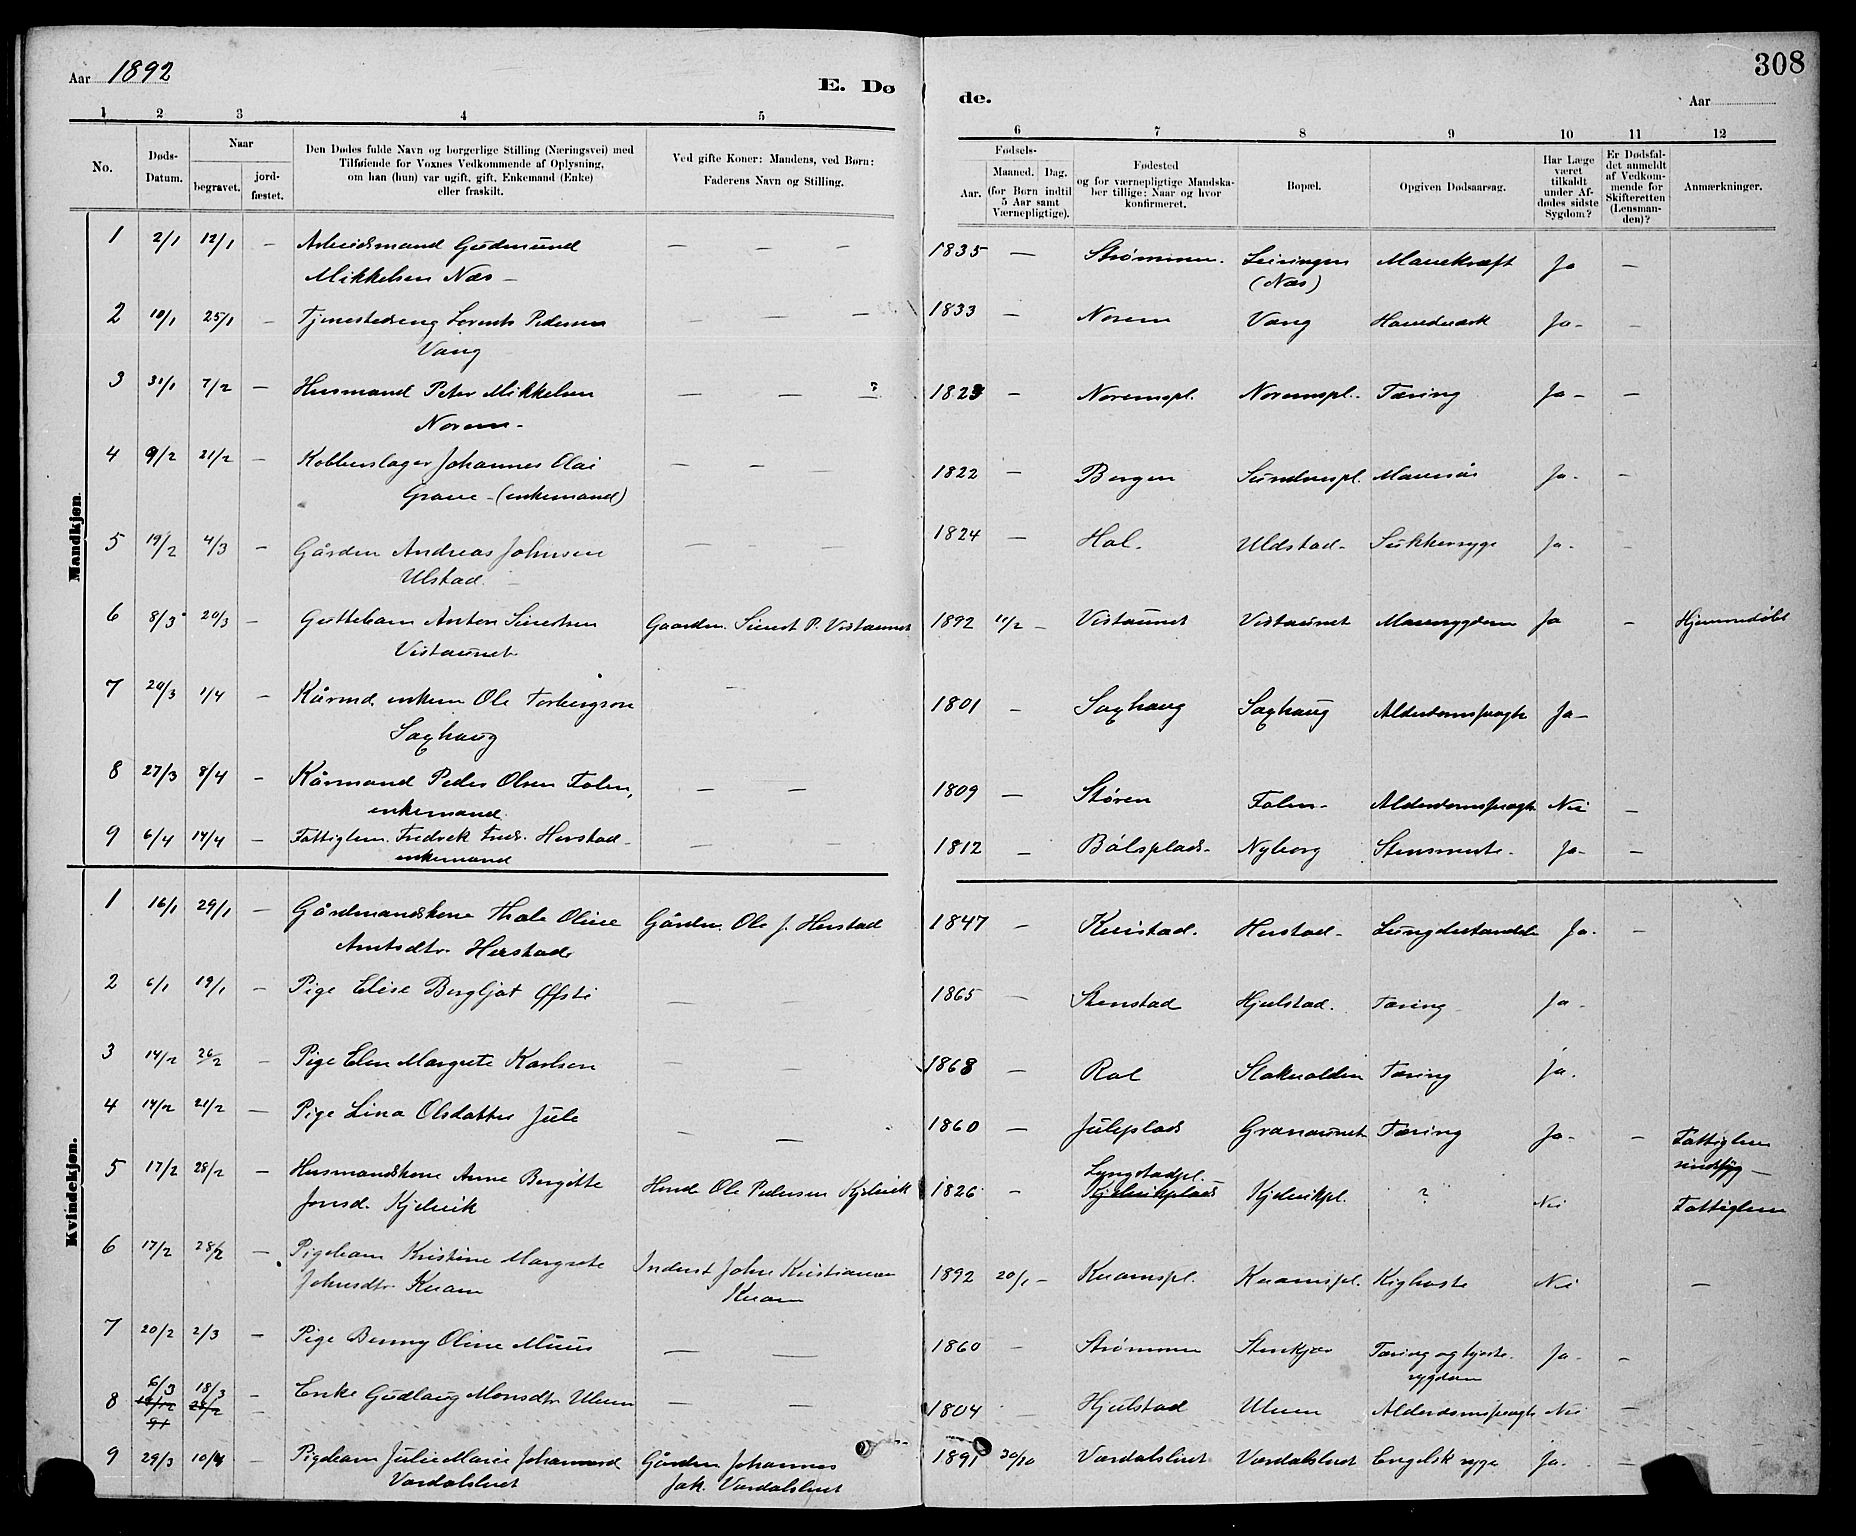 Aar 1892
E. Dø
de.
Aar
308
1 2 3 4 5 6 7 8 9 10 11 12
No.
Døds-Datum.
Naar
begravet.
jord-fæstet.
Den Dødes fulde Navn og borgerlige Stilling (Næringsvei) med
Tilføiende for Voxnes Vedkommende af Oplysning,
om han (hun) var ugift, gift, Enkemand (Enke)
eller fraskilt.
Ved gifte Koner: Mandens, ved Børn:
Faderens Navn og Stilling.
Fødsels-
Aar.
Maaned. Dag.
(for Børn indtil
5 Aar samt
Værnepligtige).
Fødested
og for værnepligtige Mandska-
ber tillige: Naar og hvor
konfirmeret.
Bopæl.
Opgiven Dødsaarsag.
Har Læge
været
tilkaldt
under Af-
dødes sidste
Sygdom?
Er Dødsfal-
det anmeldt
af Vedkom-
mende for
Skifteretten
(Lensman-
den)?
Anmærkninger.
Mandkjøn.
1 2/1 12/1 — Arbeidsmand Gudmund — — — 1835 — Strømmen Leiringen Mavekræft Ja —
Mikkelsen Næs — (Næs)
2 10/1 25/1 — Tjenestedreng Lorents Pedersen — — — 1833 — Norem Vang Ja — —
Vang
3 31/1 7/2 — Husmand Peter Mikkelsen — — ? 1823 — Noremspl. Noremspl. Tæring Ja — —
Norem —
4 9/2 21/2 — Kobberslager Johannes Olai — — — 1822 — Bergen Sundnespl. Mavesår Ja — —
Grave — (enkemand)
5 19/2 4/3 — Gårdm Andreas Johnsen — — 1824 — Hol. Uldstad — Sukkersyge Ja — —
Ulstad —
6 8/3 20/3 — Guttebarn Anton Sivertsen Gaardm. Sivert P. Vistaunet 1892 11/2 — Vistaunet Vistaunet Mavesygdom Ja — Hjemmedøbt
Vistaunet
7 20/3 1/4 — Kårmd. enkem Ole Torbergsen — 1801 — Saxhaug Saxhaug Alderdomssvagh Ja —
Saxhaug
8 27/3 8/4 — Kårmand Peder Olsen Folen, — — 1809 — Støren Folen — Alderdomssvagh Nei —
enkemand.
9 6/4 14/4 — Fattiglem. Fredrek Fredr. Herstad — — — 1812 — Bølsplads — Nyborg Stensmerte — Ja — —
enkemand
Kvindekjøn.
1 16/1 29/1 — Gårdmandskone Thale Oline Gårdm. Ole J. Herstad 1847 — Kvistad. Herstad — Lungebetændelse Ja. —
Arntsdtr. Herstad
2 6/1 19/1 — Pige Elise Bergljot Øfsti — — 1865 — Stenstad Hjelstad. Tæring — Ja —
3 14/2 26/2 — Pige Elen Margrete Karlsen — — 1868 — Rol Tæring Ja.
4 14/2 21/2 — Pige Lina Olsdatter Jule — — 1860 — Juleplads Granaunet Tæring Ja — — Fattiglem
sindssyg —
5 17/2 28/2 — Husmandskone Anne Bergitte Hmd. Ole Pedersen Kjelvik 1826 — Lyngstadpl. Kjelvikplads Kjelvikpl. ? Nei Fattiglem
Jonsd. Kjelvik
6 17/2 28/2 — Pigebarn Kristine Margrete Inderst John Kristiansen 1892 20/1 — Kvamspl. Kvamspl. Kighoste Nei —
Johnsdtr. Kvam Kvam
7 20/2 2/3 — Pige Benny Oline Muus — — 1860 — Strømmen Stenkjær Tæring og hjerte- Ja — —
sygdom
8 6/3 18/3 — Enke Gudlaug Monsdtr. Ulven — — 1804 — Hjelstad Ulven Alderdomssvagh Nei —
28/2
9 29/3 10/4 — Pigebarn Julie Marie Gårdm Johannes 1891 30/10 Værdalslivet Værdalslivet Engelsk syge Ja. — —
Værdalslivet Jak. Værdalslivet